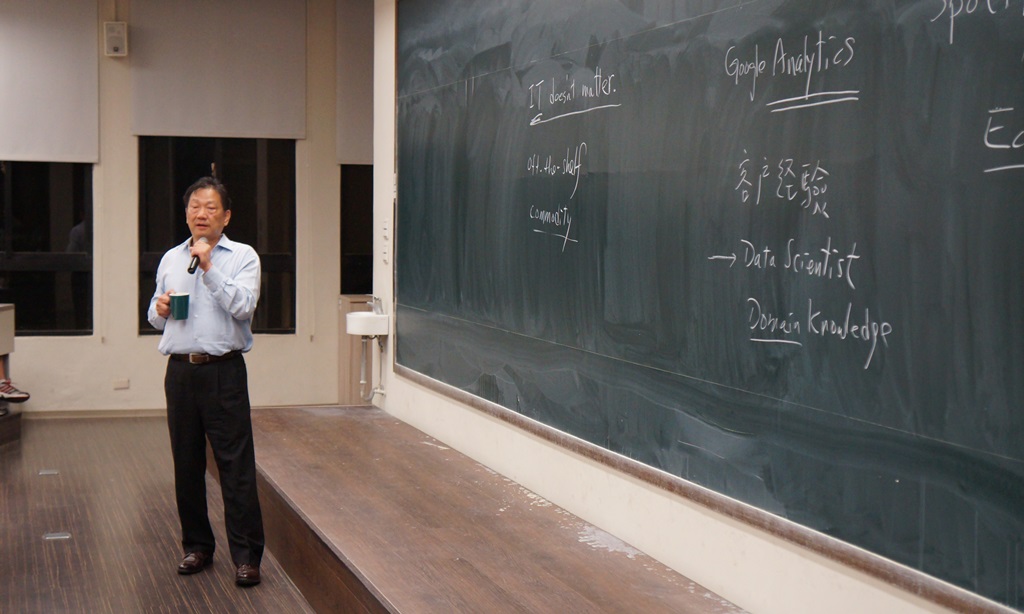 IT doesn't matter.
off-the-shelf
commodity
Google Analytics
客户经驗
→ Data Scientist
Domain Knowledge